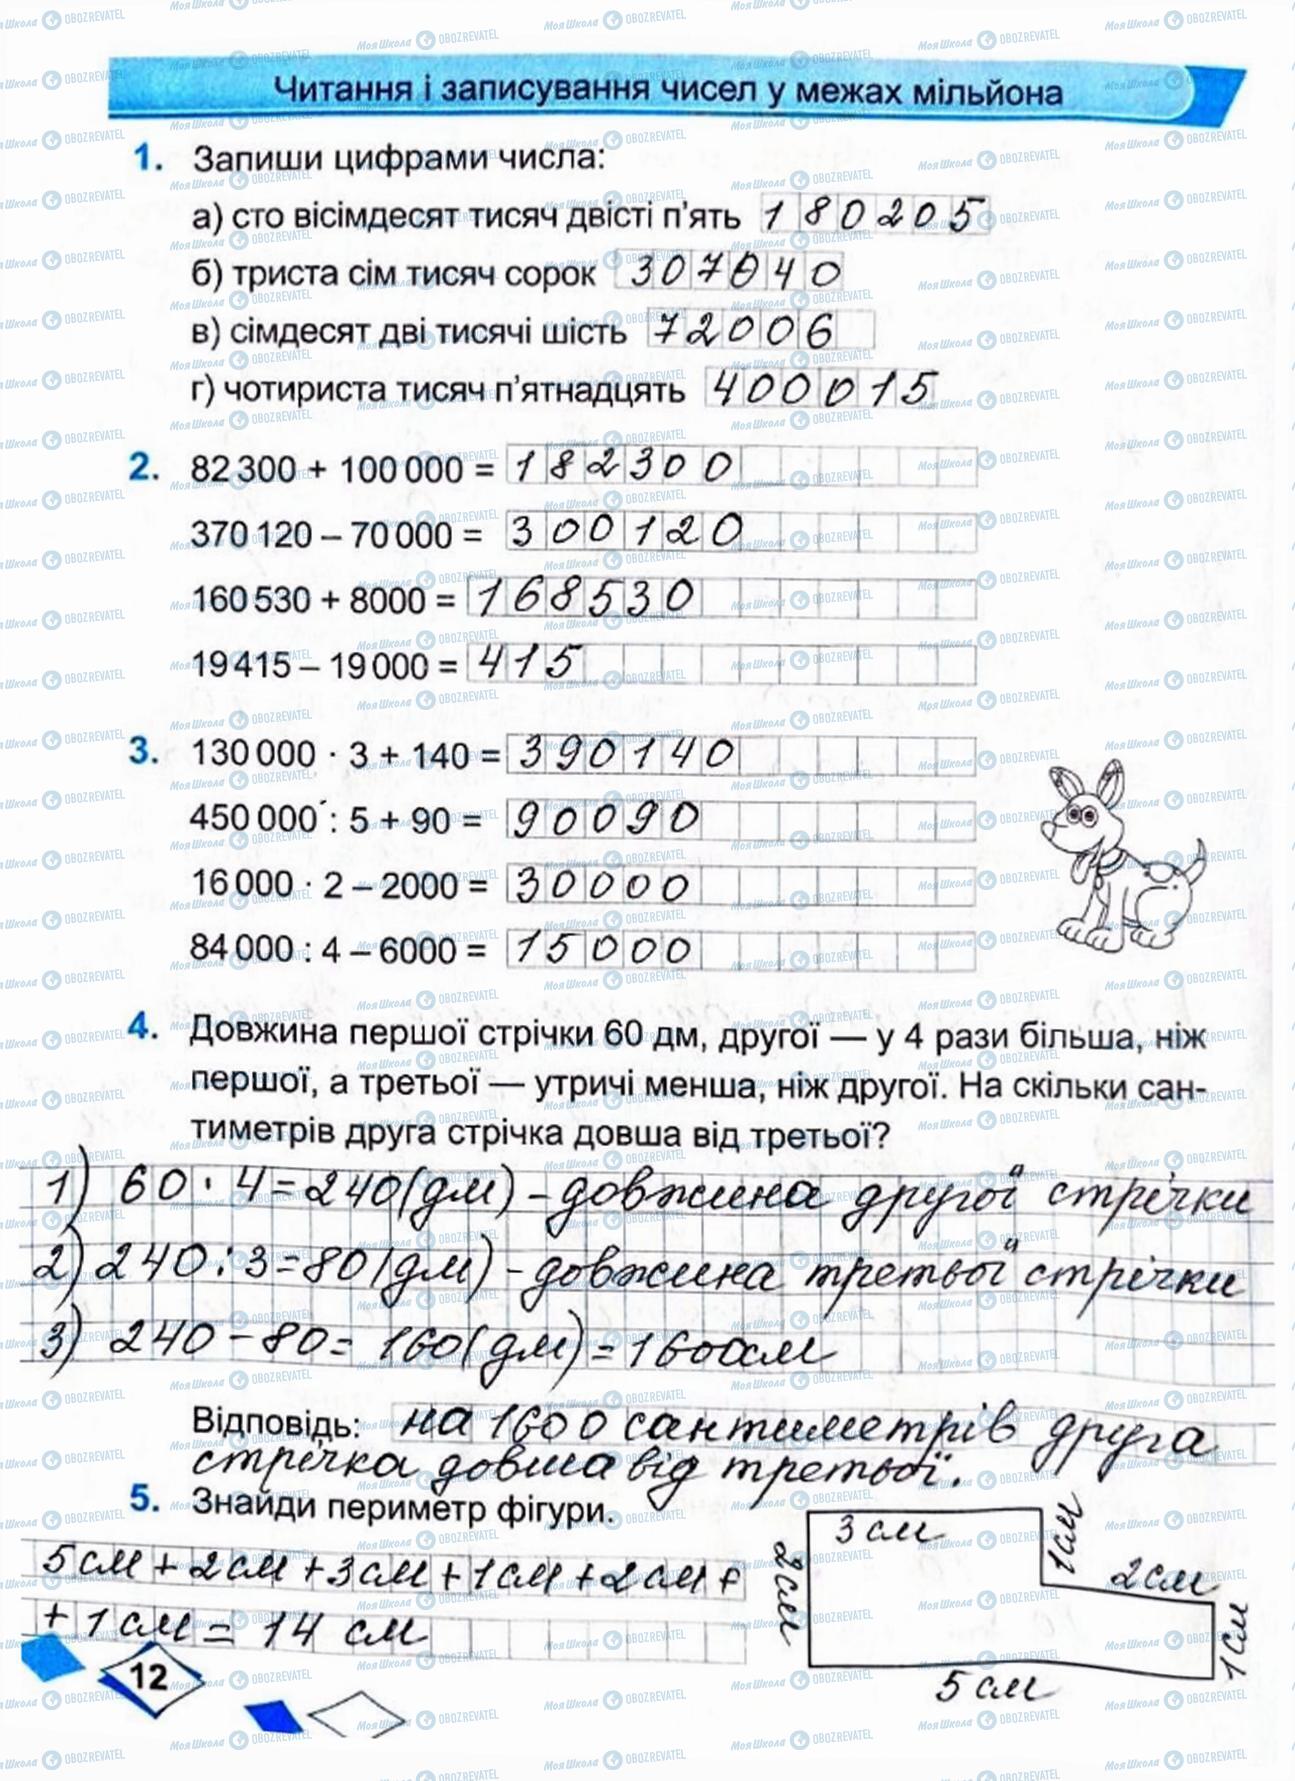 Читання і записування чисел у межах мільйона
1. Запиши цифрами числа:
а) сто вісімдесят тисяч двісті п'ять 180205
б) триста сім тисяч сорок 307040
в) сімдесят дві тисячі шість 72006
г) чотириста тисяч п'ятнадцять 400015
2. 82 300 + 100 000 = 182300
370 120 – 70 000 = 300120
160 530 + 8000 = 168530
19 415 – 19 000 = 415
3. 130 000 · 3 + 140 = 390140
450 000 : 5 + 90 = 90090
16 000 · 2 – 2000 = 30000
84 000 : 4 – 6000 = 15000
4. Довжина першої стрічки 60 дм, другої — у 4 рази більша, ніж
першої, а третьої — утричі менша, ніж другої. На скільки сан-
тиметрів друга стрічка довша від третьої?
1) 60 · 4 = 240 (дм) – довжина другої стрічки
2) 240 : 3 = 80 (дм) – довжина третьої стрічки
3) 240 – 80 = 160 (дм) = 1600см
Відповідь: на 1600 сантиметрів друга
стрічка довша від третьої.
5. Знайди периметр фігури.
5см + 2см + 3см + 1см + 2см +
+ 1 см = 14 см
3см
1см
2см
2см
1см
5см
12
МояШкола OBOZREVATEL